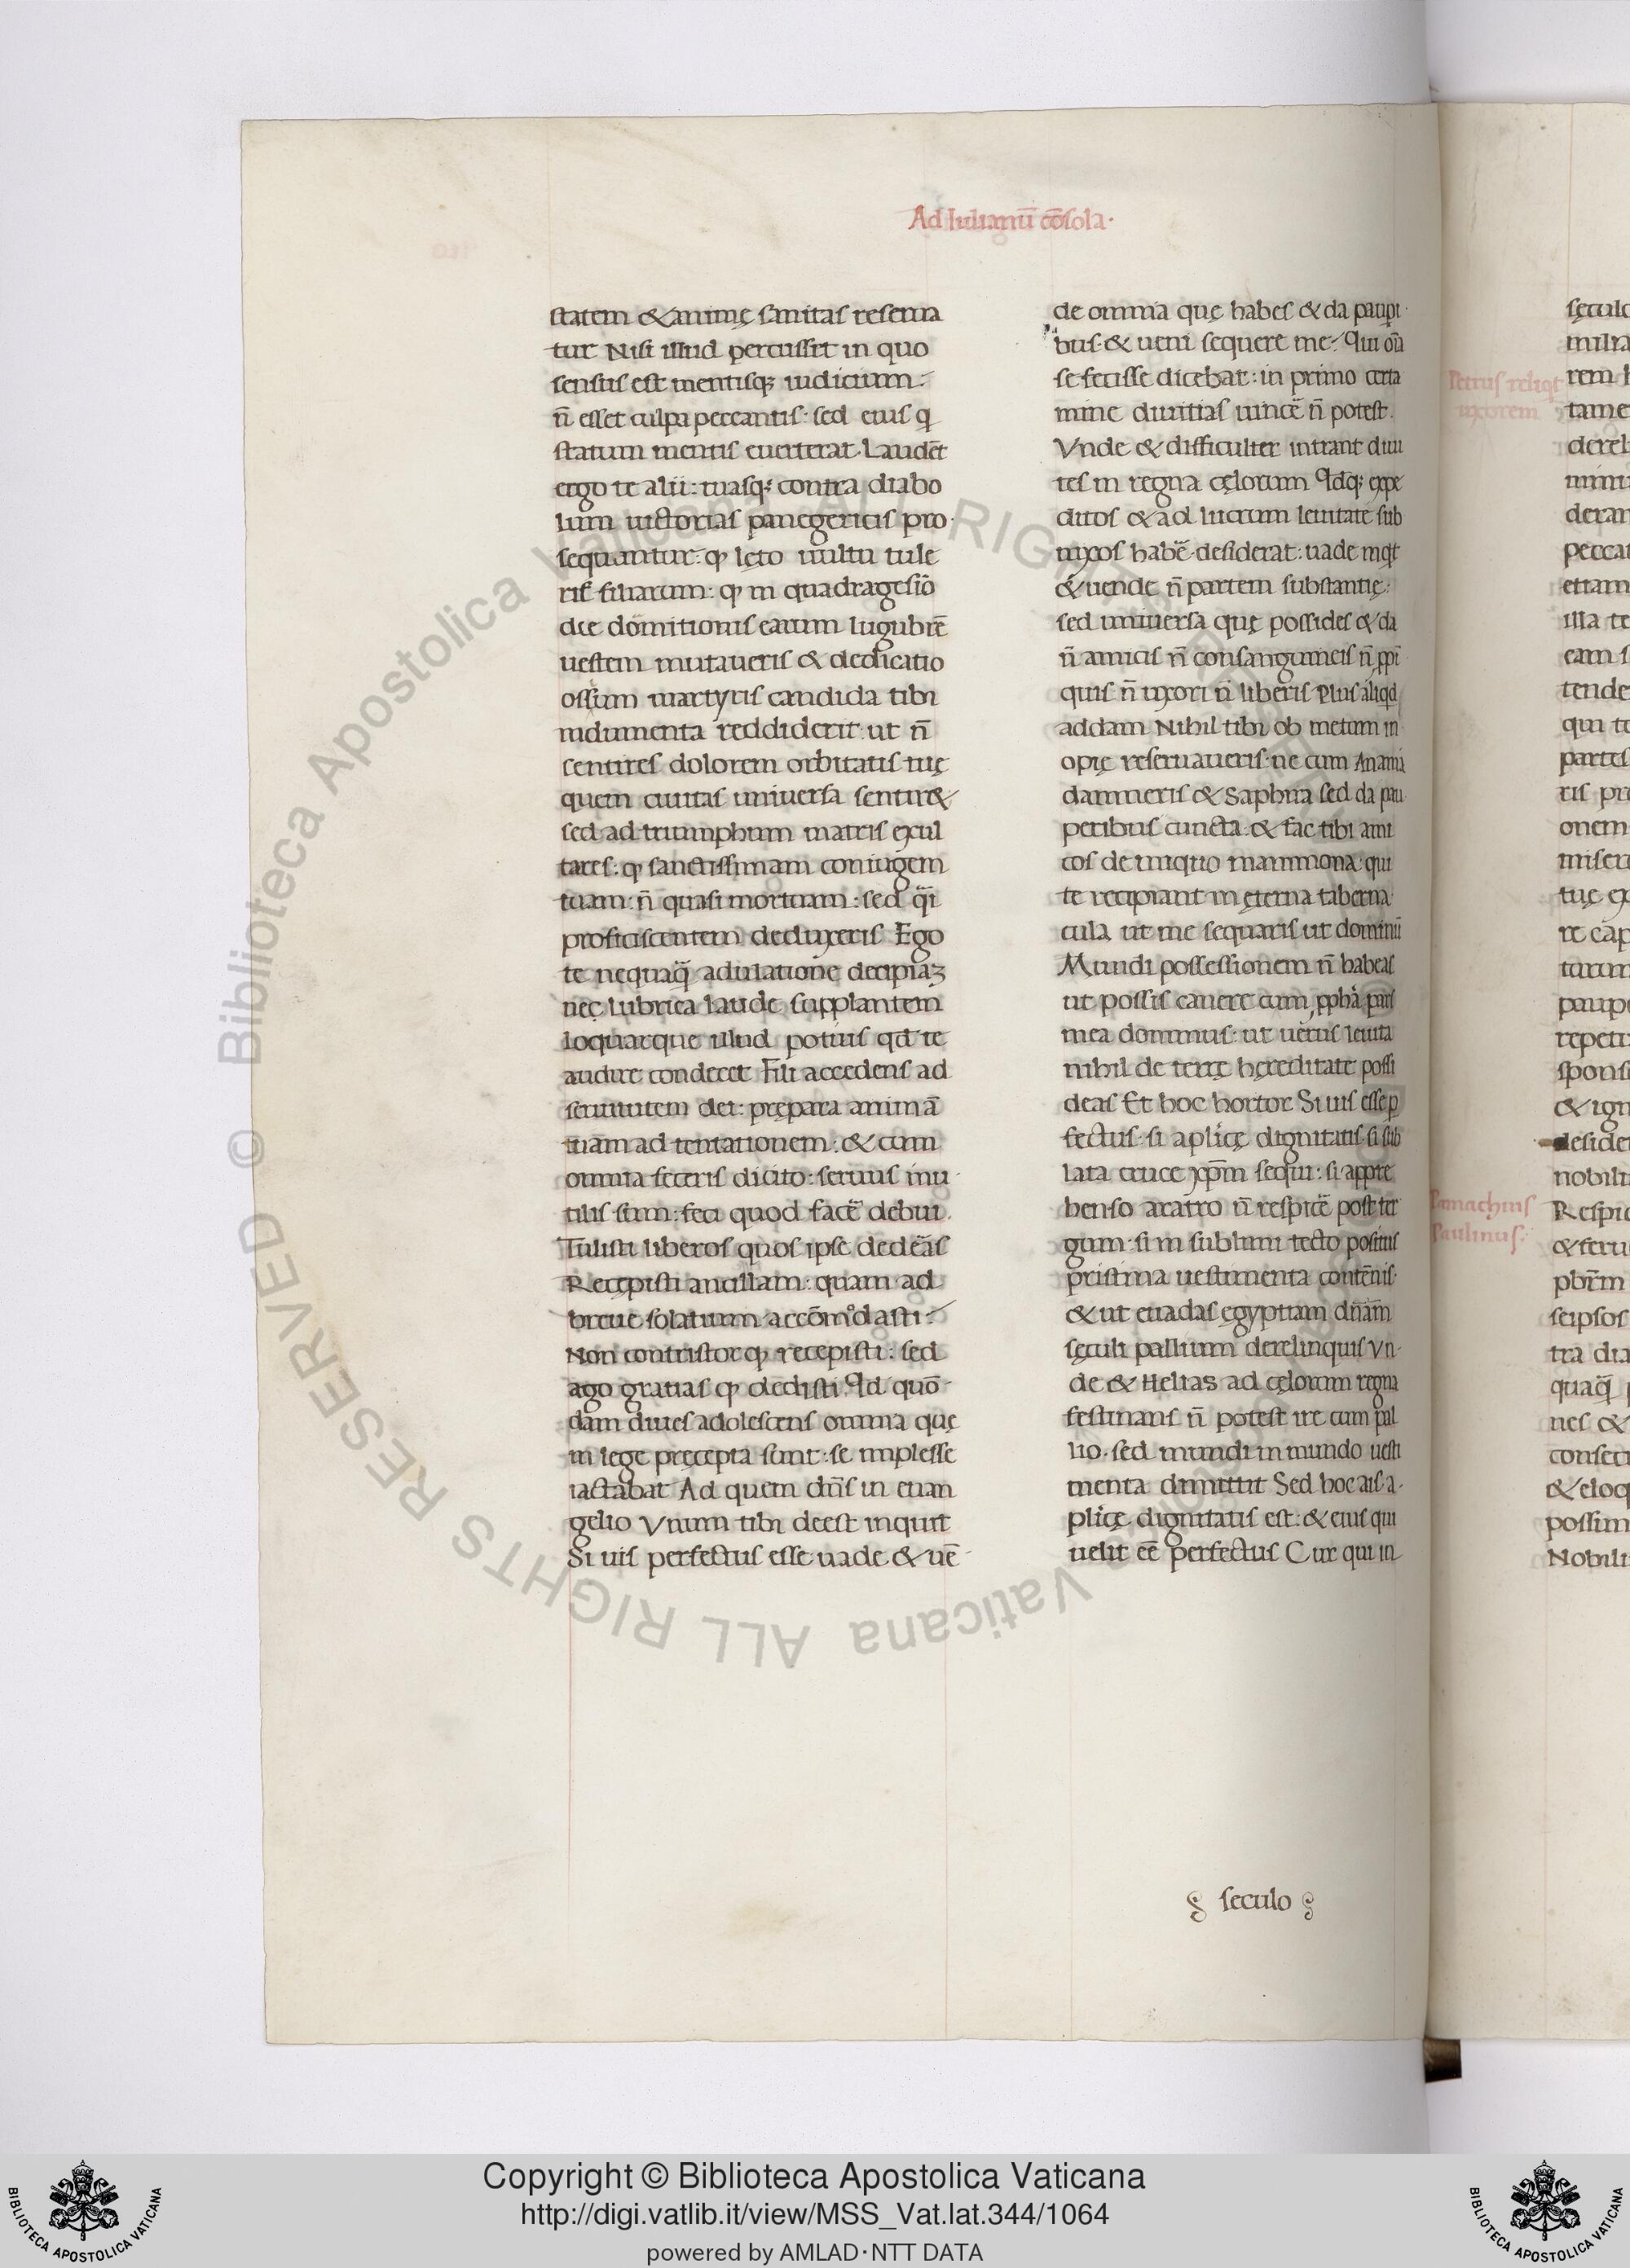 Ad Iulianū cōsola·
statem & animę sanitas reserua
tur Nisi illud percussit in quo
sensus est mentisq; iudicium:
n̄ esset culpa peccantis· sed eius q̇
statum mentis euerterat· Laudēt
ergo te alii: tuasq; contra diabo
lum uictorias panegericis pro·
sequantur: ꝙ lęto uultu tule
ris filiarum: ꝙ in quadragesiō
die domitionis earum lugubrē
uestem mutaueris & dedicatio
ossium martyris candida tibi
indumenta reddiderit: ut n̄
sentires dolorem orbitatis tuę
quem ciuitas uniuersa sentir&
sed ad triumphum matris exul
tares: ꝙ sanctissimam coniugem
tuam: n̄ quasi mortuam: sed q̄i
proficiscentem deduxeris Ego
te nequaq̄ adulatione decipiaꝫ
nec lubrica laude supplantem
loquarque illud potius qd̄ te
audire condecet Fili accedens ad
seruitutem dei: prępara animā
tuam ad tentationem: & cum
omnia feceris dicito: seruus inu·
tilis sum: feci quod facē debui·
Tulisti liberos quos ipse dedeās
Recępisti ancillam: quam ad
breue solatium accōmodasti:
Non contristor ꝙ recepisti: sed
ago gratias ꝙ dedisti· Id quō·
dam diues adolescens omnia quę
in lege pręcepta sunt: se implesse
iactabat Ad quem dn̄s in euan
gelio Vnum tibi deest inquit
Si uis perfectus esse uade & uē·
de omnia quę habes & da paupi·
bus· & ueni sequere me: Qui oīa
se fecisse dicebat: in primo certa
mine diuitias uincē n̄ potest·
Vnde & difficulter intrant diui
tes in regna cęlorum Idq; expe
ditos & ad lucrum leuitate sub
nixos habē· desiderat: uade inqt
& uende n̄ partem substantię:
sed uniuersa quę possides & da
n̄ amicis n̄ consanguineis n̄ ꝓpī
quis n̄ uxori n̄ liberis Plus aliqd
addam Nihil tibi ob metum in
opię reseruaueris· ne cum Anania
damneris & Saphira sed da pau
peribus cuncta· & fac tibi ami
cos de iniquo mammona· qui
te recipiant in ęterna taberna·
cula ut me sequaris ut dominū
Mundi possessionem n̄ habeas
ut possis canere cum ꝓpha· pars
mea dominus: ut uerus leuita
nihil de terrę hęreditate possi
deas Et hoc hortor Si uis esse ꝑ
fectus· si aplicę dignitatis· si sub
lata cruce xp̄m sequi: si appre
henso aratro n̄ respicē post ter
gum: si in sublimi tecto positus
pristina uestimenta contēnis·
& ut euadas egyptiam dn̄am
sęculi pallium derelinquis Vn·
de & Helias ad cęlorum regna
festinans n̄ potest ire cum pal
lio· sed mundi in mundo uesti
menta dimittit Sed hoc ais· a·
plicę dignitatis est: & eius qui
uelit eē perfectus Cur qui in
seculo
Petrus reliqt
uxorem
Pamachius
Paulinus:
sęculo
rem
tame
derel
illa te
eam s
tende
qui te
partes
onem
miser
re cap
paup
spons
& ign
deside
nobili
Respic
pbr̄m
seipsos
tra dia
quaq̄
nes &
consec
& eloq
possim
Nobili
© Biblioteca Apostolica Vaticana ALL RIGHTS RESERVED
Copyright © Biblioteca Apostolica Vaticana
http://digi.vatlib.it/view/MSS_Vat.lat.344/1064
powered by AMLAD·NTT DATA
BIBLIOTECA APOSTOLICA VATICANA
BIBLIOTECA APOSTOLICA VATICANA